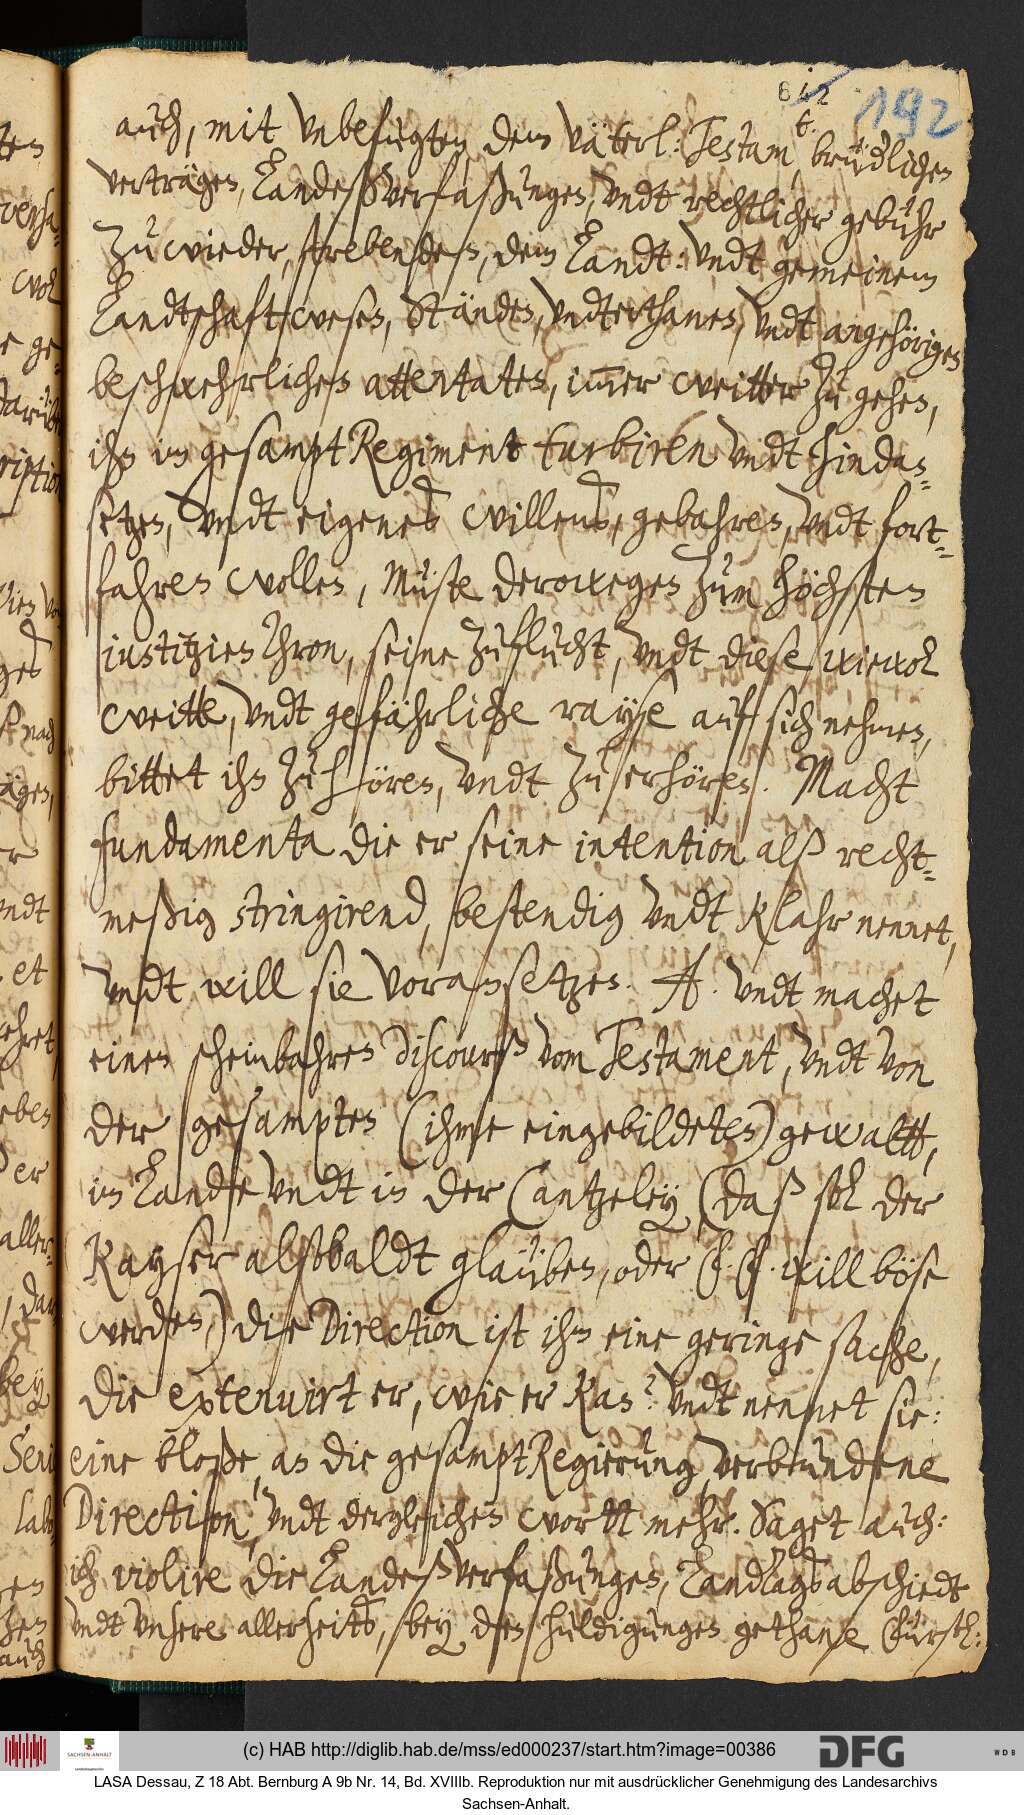 642 192
auch, mit unbefugten, dem väterl: Testam̃t, brüdlichen
verträgen, Landeßverfaßungen, undt rechtlicher gebühr
zu wieder, strebenden, dem Landt: undt gemeinem
Landtschaftwesen, Ständen, undterthanen, undt angehörigen
beschwehrlichen attentaten, im̄er weitter zu gehen,
ihn im gesampt Regiment turbiren undt hindan=
setzen, undt eigenes willens, gebahren, undt fort=
fahren wollen, Müste derowegen zum höchsten
justitzien Thron, seine zuflucht, undt diese wiewol
weitte, undt gefährliche rayse auf sich nehmen,
bittet ihn zu hören, undt zu erhören. Macht
fundamenta die er seine intention alß recht=
meßig stringirend, bestendig undt klahr nennet,
undt will sie voransetzen. A. undt machet
einen scheinbahren discourß vom Testament, undt von
der gesampten (ihme eingebildeten) gewaltt,
im Lande undt in der Cantzeley (daß sol der
Kayser alsobaldt gläuben, oder E. E. will böse
werden,) die Direction ist ihm eine geringe sache,
die extenuirt er, wie er kan? undt nennet sie:
eine bloße, an die gesampt Regierung, verbundene
Direction, undt dergleichen wortt mehr. Saget auch:
ich violire die Landeßverfaßungen, Landtags abschiedt
undt unsere allerseits, bey den huldigungen gethane Fürstl:
(c) HAB http://diglib.hab.de/mss/ed000237/start.htm?image=00386
SACHSEN-ANHALT
DFG
WDB
LASA Dessau, Z 18 Abt. Bernburg A 9b Nr. 14, Bd. XVIIIb. Reproduktion nur mit ausdrücklicher Genehmigung des Landesarchivs
Sachsen-Anhalt.